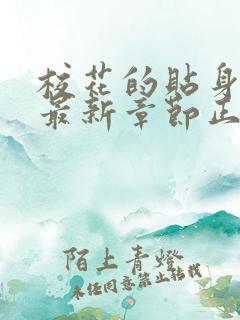 校花的贴身
最新章节正
陌上青灯
未经同意禁止转载